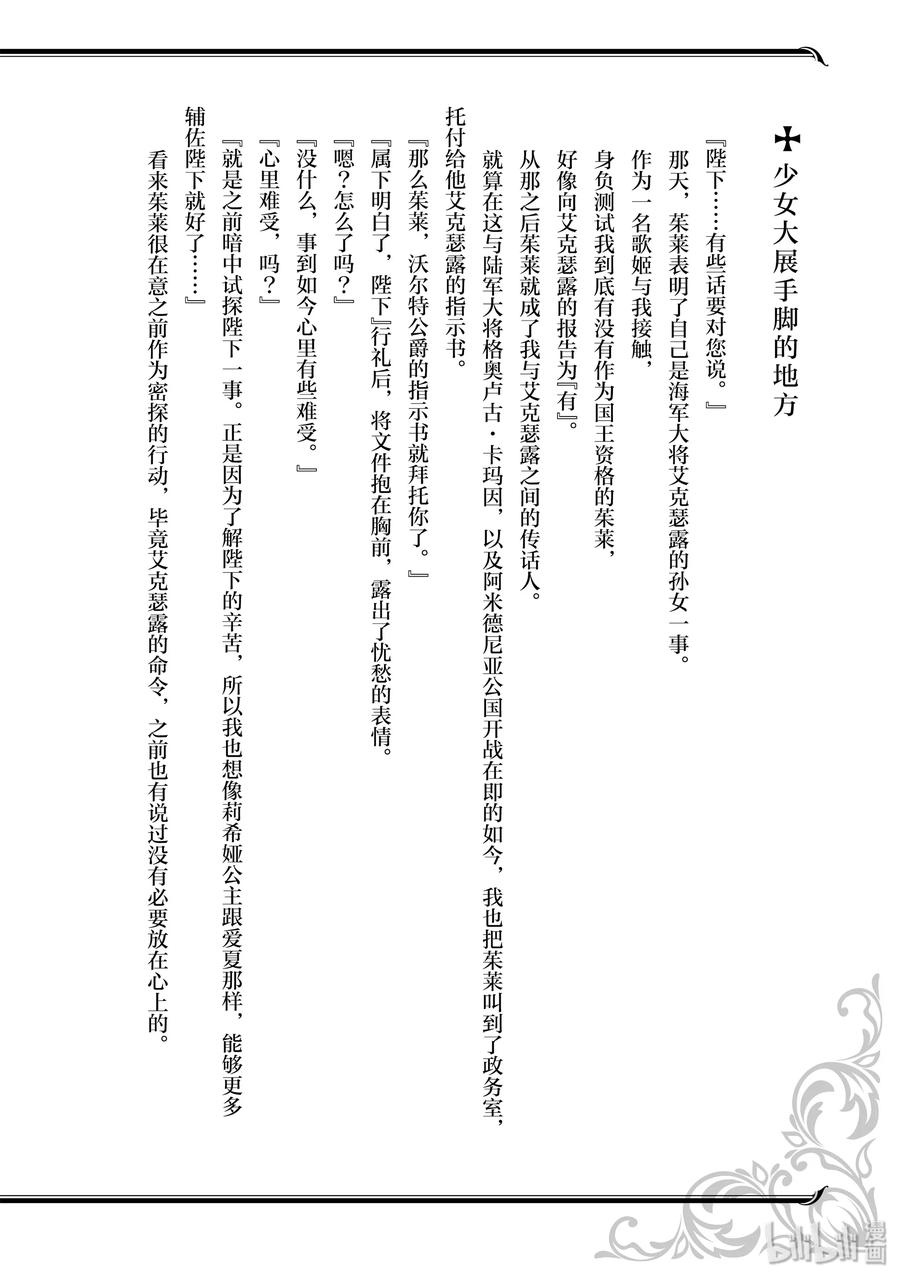 ✠少女大展手脚的地方
『陛下……有些话要对您说。』
那天，茱莱表明了自己是海军大将艾克瑟露的孙女一事。
作为一名歌姬与我接触，
身负测试我到底有没有作为国王资格的茱莱，
好像向艾克瑟露的报告为『有』。
从那之后茱莱就成了我与艾克瑟露之间的传话人。
就算在这与陆军大将格奥卢古·卡玛因，以及阿米德尼亚公国开战在即的如今，我也把茱莱叫到了政务室，
托付给他艾克瑟露的指示书。
『那么茱莱，沃尔特公爵的指示书就拜托你了。』
『属下明白了，陛下』行礼后，将文件抱在胸前，露出了忧愁的表情。
『嗯？怎么了吗？』
『没什么，事到如今心里有些难受。』
『心里难受，吗？』
『就是之前暗中试探陛下一事。正是因为了解陛下的辛苦，所以我也想像莉希娅公主跟爱夏那样，能够更多
辅佐陛下就好了……』
看来茱莱很在意之前作为密探的行动，毕竟艾克瑟露的命令，之前也有说过没有必要放在心上的。
bilibili漫画